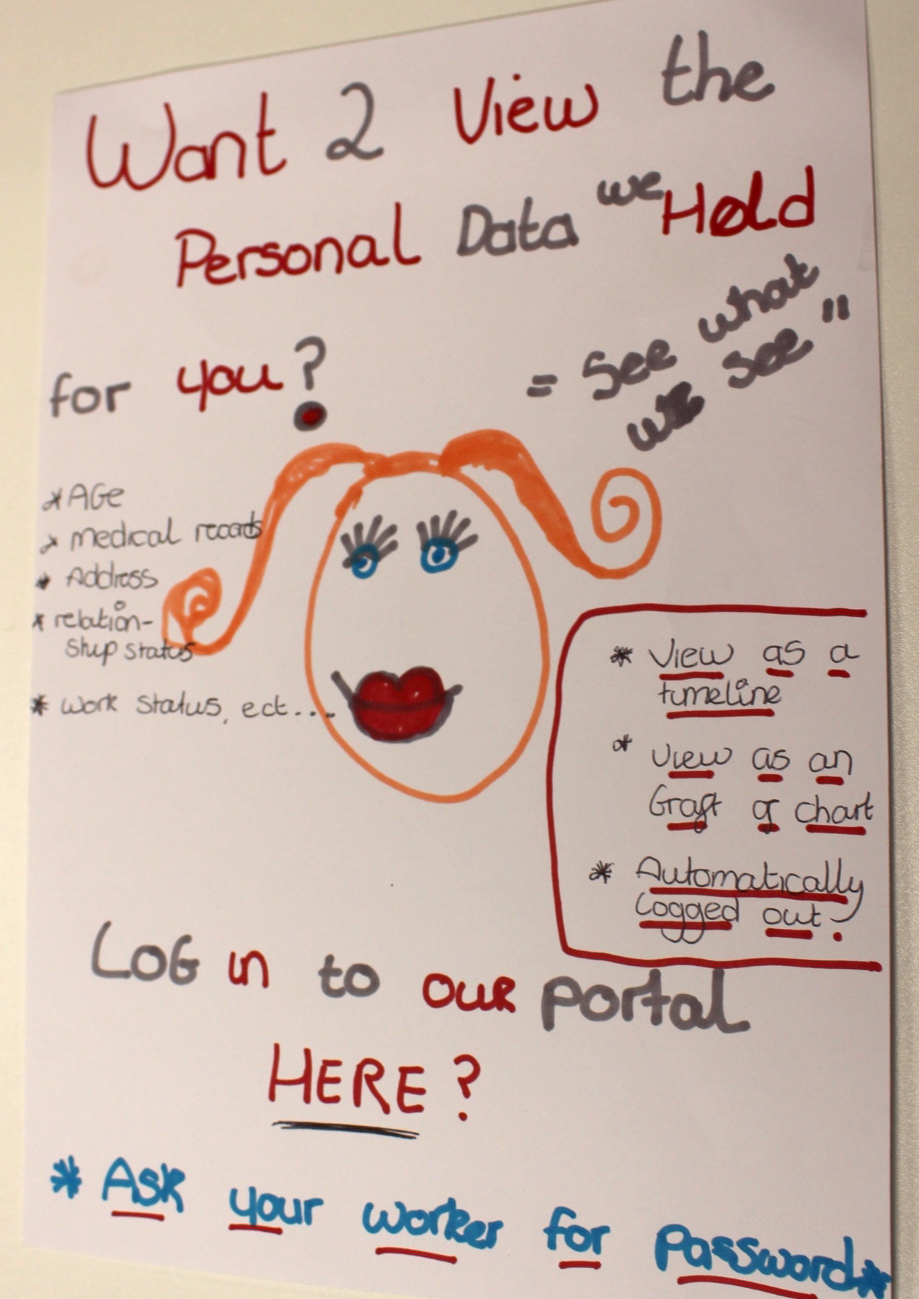 Want 2 View the
Personal Data we Hold
for you?
= See what
we see "
* AGE
* medical records
* Address
* relation-
ship status
* work status, ect....
* View as a
timeline
* View as an
Graft or chart
* Automatically
Logged out.
LOG in to our portal
HERE?
* Ask your worker for Password*